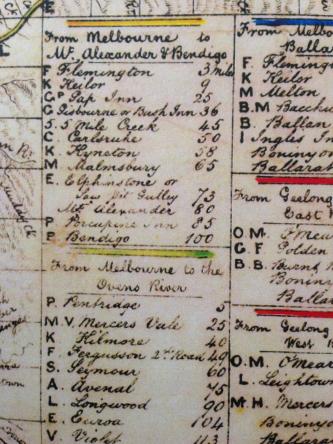 From Melbourne to
Mt. Alexander & Bendigo
F Flemington 3 miles
K Keilor 9
G.P Gap Inn 25
G Gisbourne or Bush Inn 36
5. 5 Mile Creek 45
C. Carlsruhe 50
K. Kyneton 58
M Malmsbury 65
E. Elphinstone or
Saw Pit Gulley 73
Mt. Alexander 80
P. Porcupine Inn 85
B Bendigo 100
From Melbourne to the
Ovens River
P. Pentridge 5
M.V. Mercers Vale 25
K Kilmore 40
F. Fergusson 2nd Road 49
S. Seymour 60
A. Avenal 75
L. Longwood 90
E. Euroa 104
V. Violet 113
From Melbo
Balla
F. Fleming
K Keilor
M Melton
B.M Bacch
B. Ballan
I Ingles In
Boninyo
Ballarat
From Geelong
East
O.M. O'Mea
G.F Golden
B.B.
Bonin
Balla
From Geelong
West
O.M. O'Mear
L. Leighto
M.H. Mercers
Boni